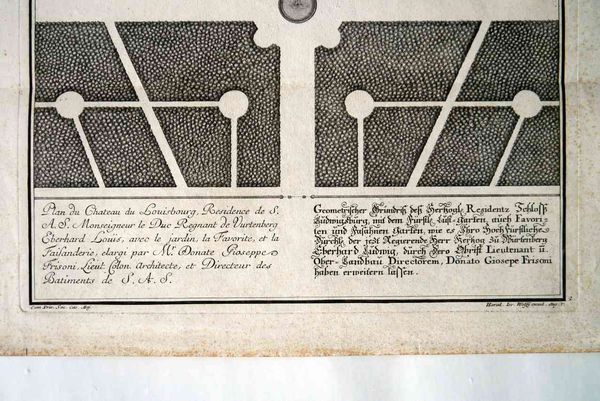 Plan du Chateau du Louisbourg, Residence de S.
A. S. Monseigneur le Duc Regnant de Vurtenberg
Eberhard Louis, avec le jardin, la Favorite, et la
Faisanderie, elargi par Mr. Donate Gioseppe
Frisoni, Lieut. Colon. Architecte, et Directeur des
Batiments de S. A. S.
Geometrischer Grundriss dess Hertzogl. Residentz Schloss
Ludwigsburg, mit dem Fürstl. Lust-Garten, auch Favori-
ten und Fasahnen Garten, wie es Ihro Hoch Fürstliche
Durchl. der jezt Regierende Herr Hertzog zu Würtenberg
Eberhard Ludwig, durch Dero Obrist Lieutenant u.
Ober-Landbau Directorem, Donato Giosepe Frisoni
haben erweitern lassen.
Cum Priv. Sac. Cæs. Maj.
Hæred. Ier. Wolffij excud. Aug. V.